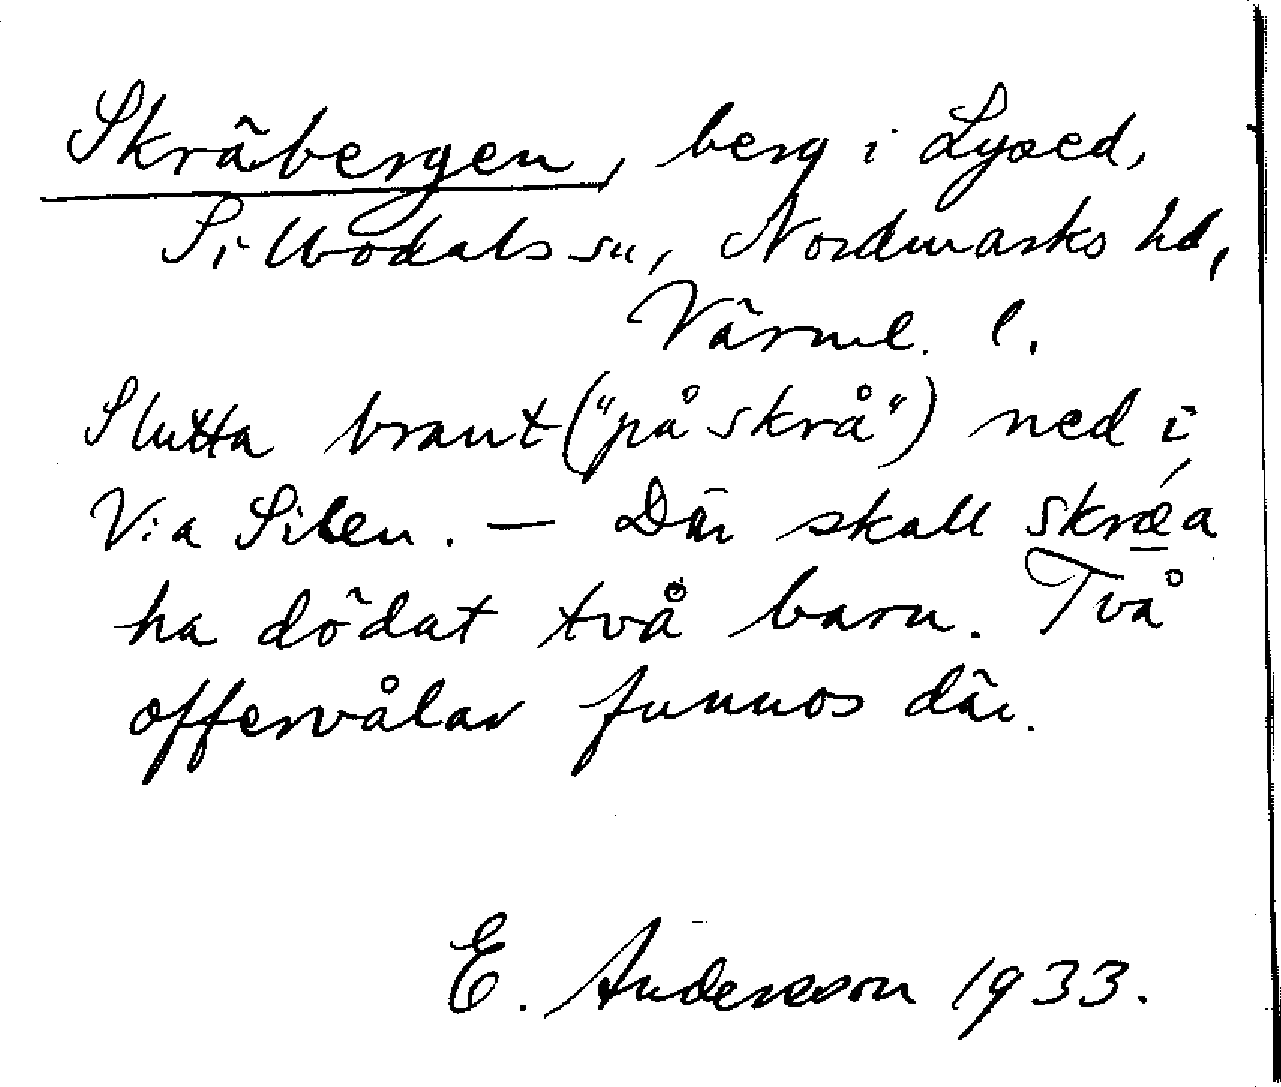 Skräbergen, berg i Lysed,
Sillbodals sn, Nordmarks hd,
Värml. l.
Slutta brant ("på skrå") ned i
V:a Silen. — Där skall skrǽa
ha dödat två barn. Två
offervålar funnos där.
E. Andersson 1933.